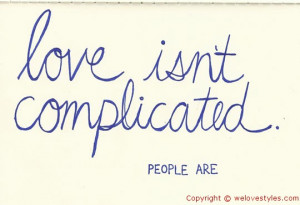 love isn't
complicated.
PEOPLE ARE
Copyright © welovestyles.com